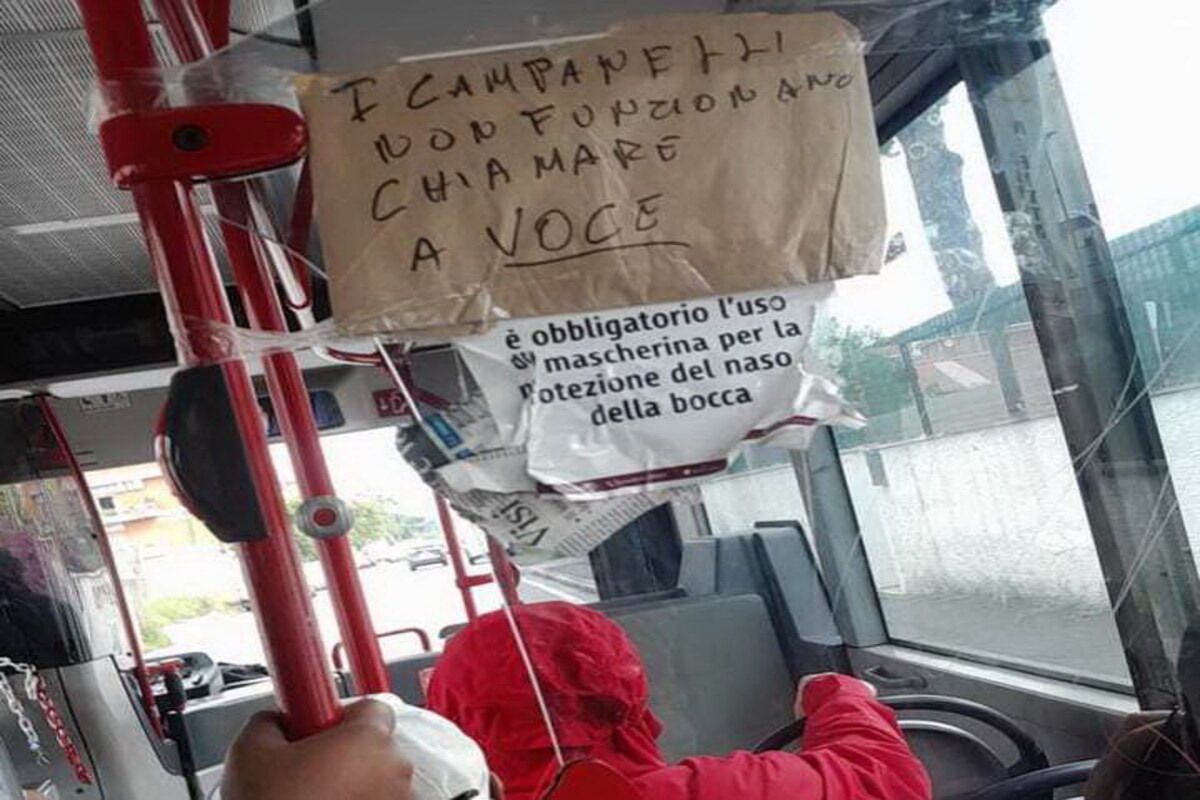 I CAMPANELLI
NON FUNZIONANO
CHIAMARE
A VOCE
è obbligatorio l'uso
mascherina per la
protezione del naso
della bocca
VISI